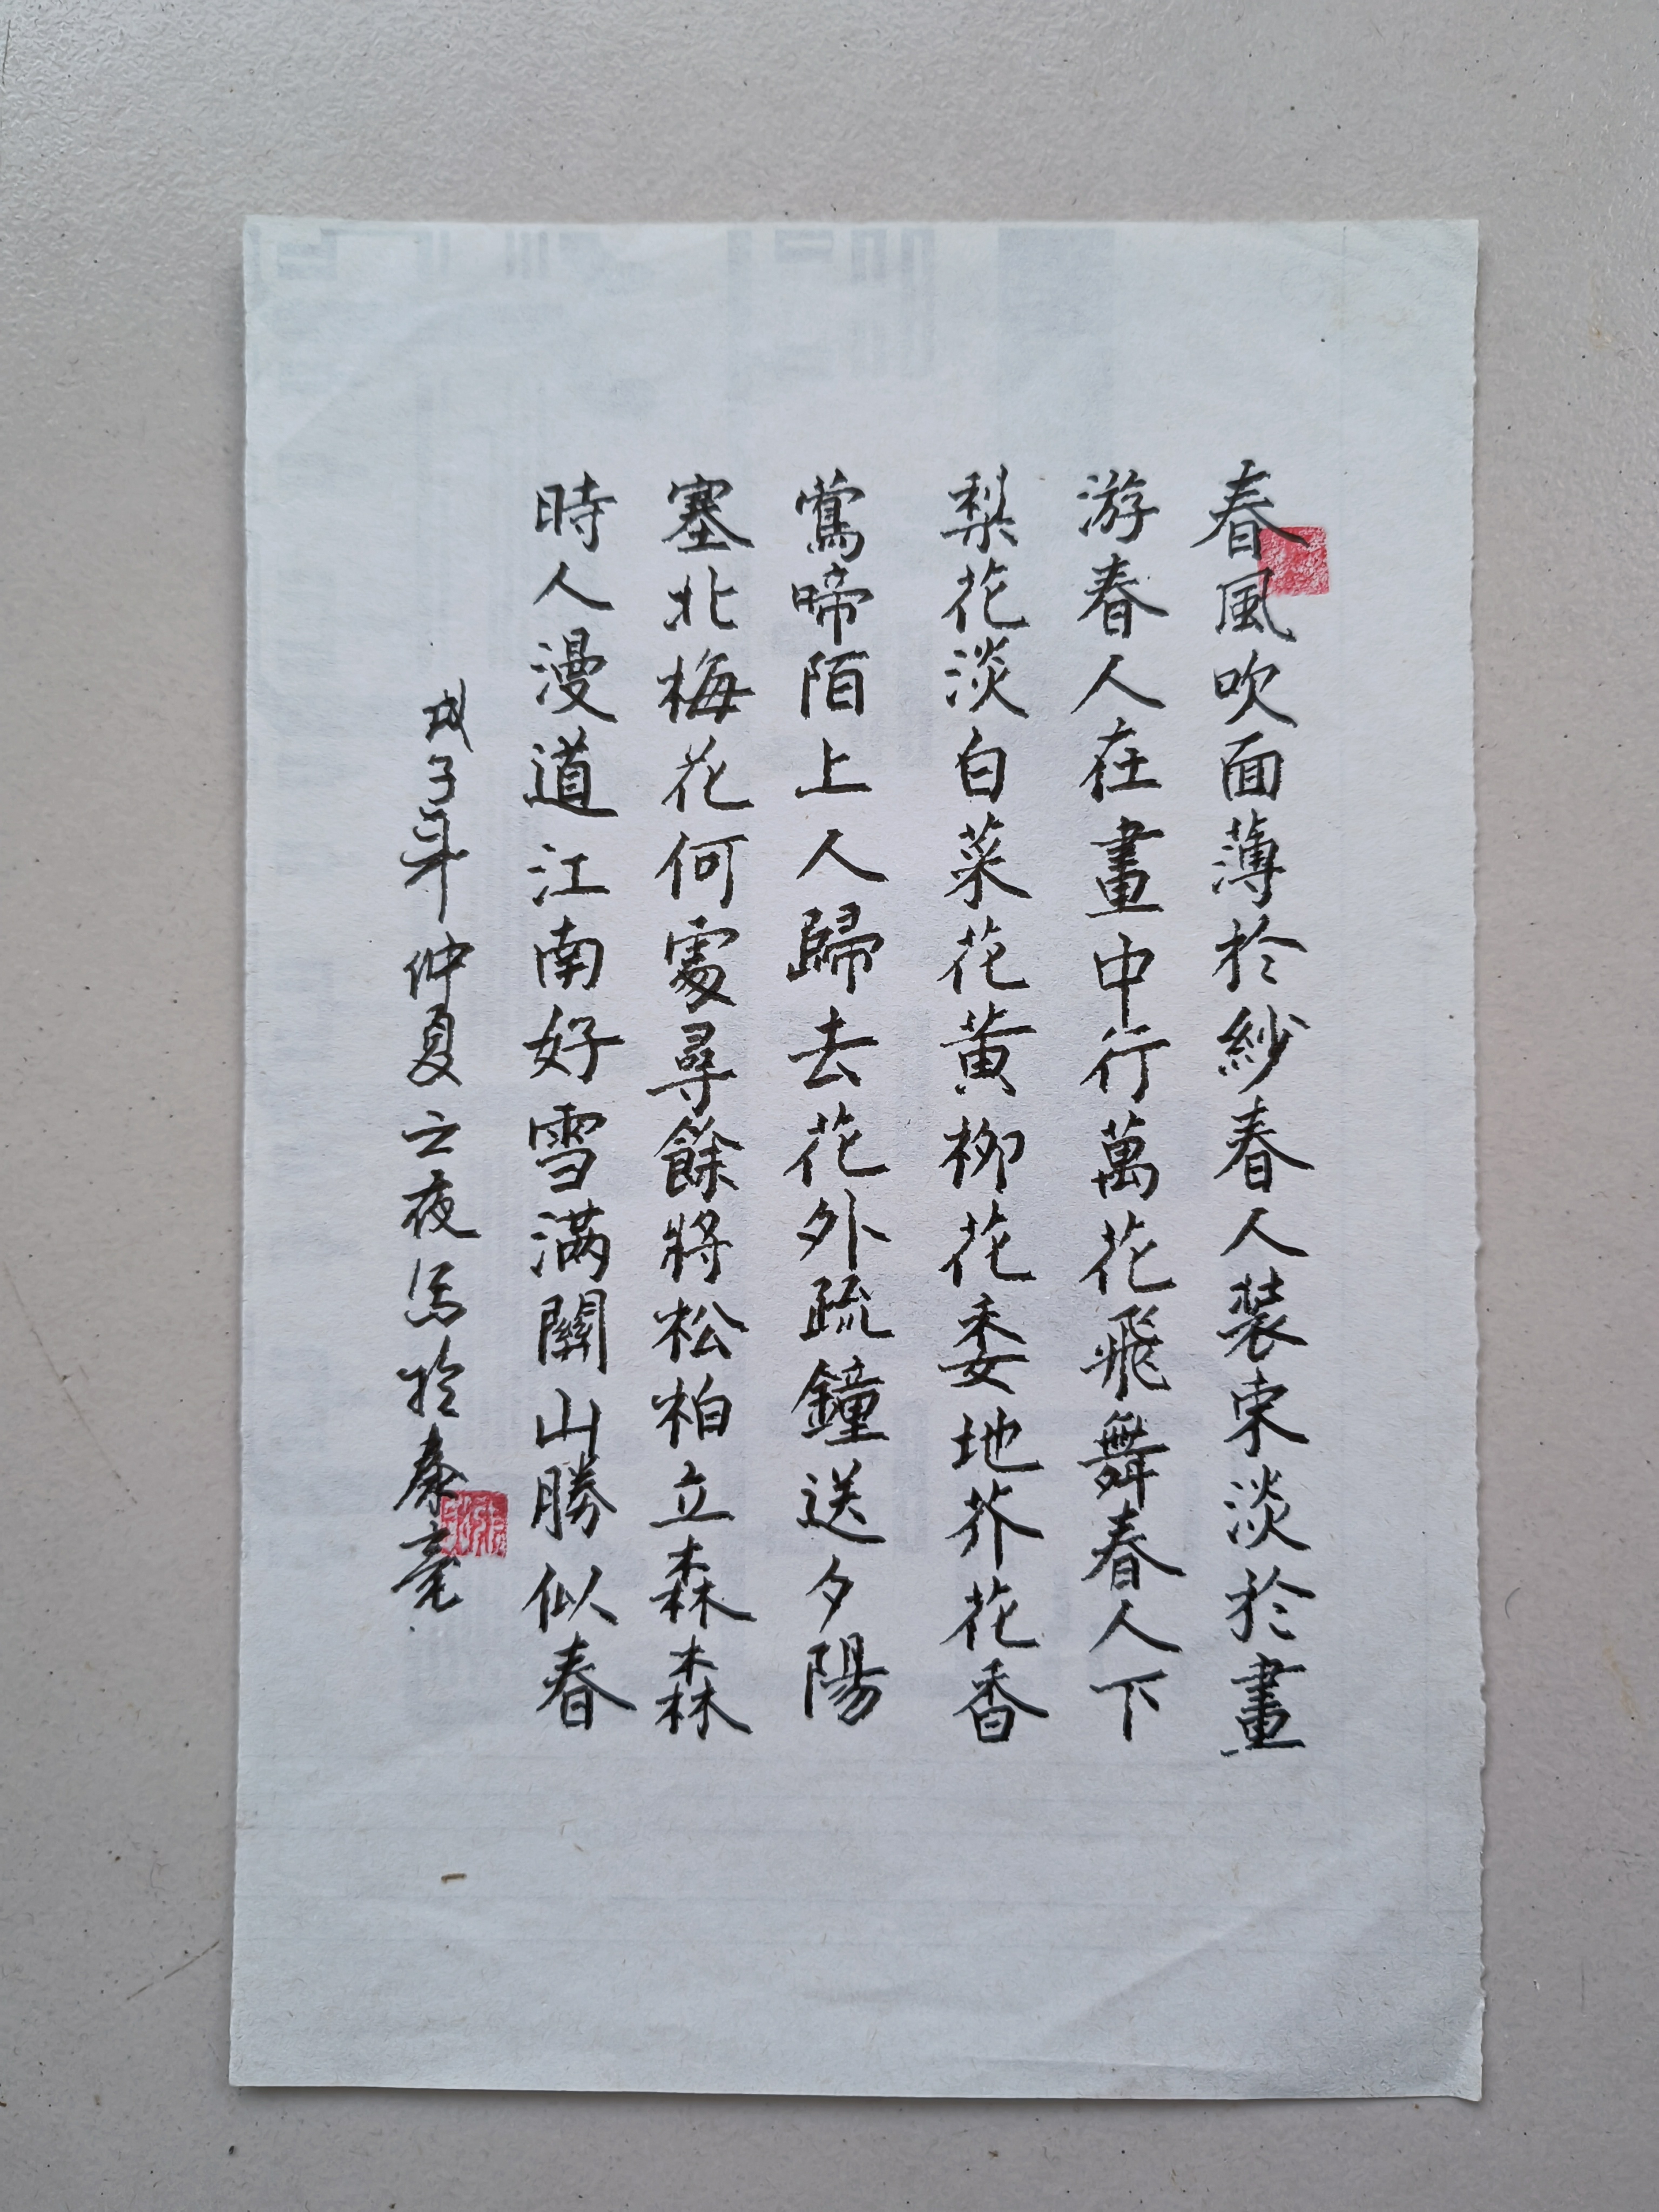 春風吹面薄於紗春人裝束淡於畫
游春人在畫中行萬花飛舞春人下
梨花淡白菜花黃柳花委地芥花香
鶯啼陌上人歸去花外疏鐘送夕陽
塞北梅花何處尋餘將松柏立森森
時人漫道江南好雪满關山勝似春
子年仲夏之夜写於